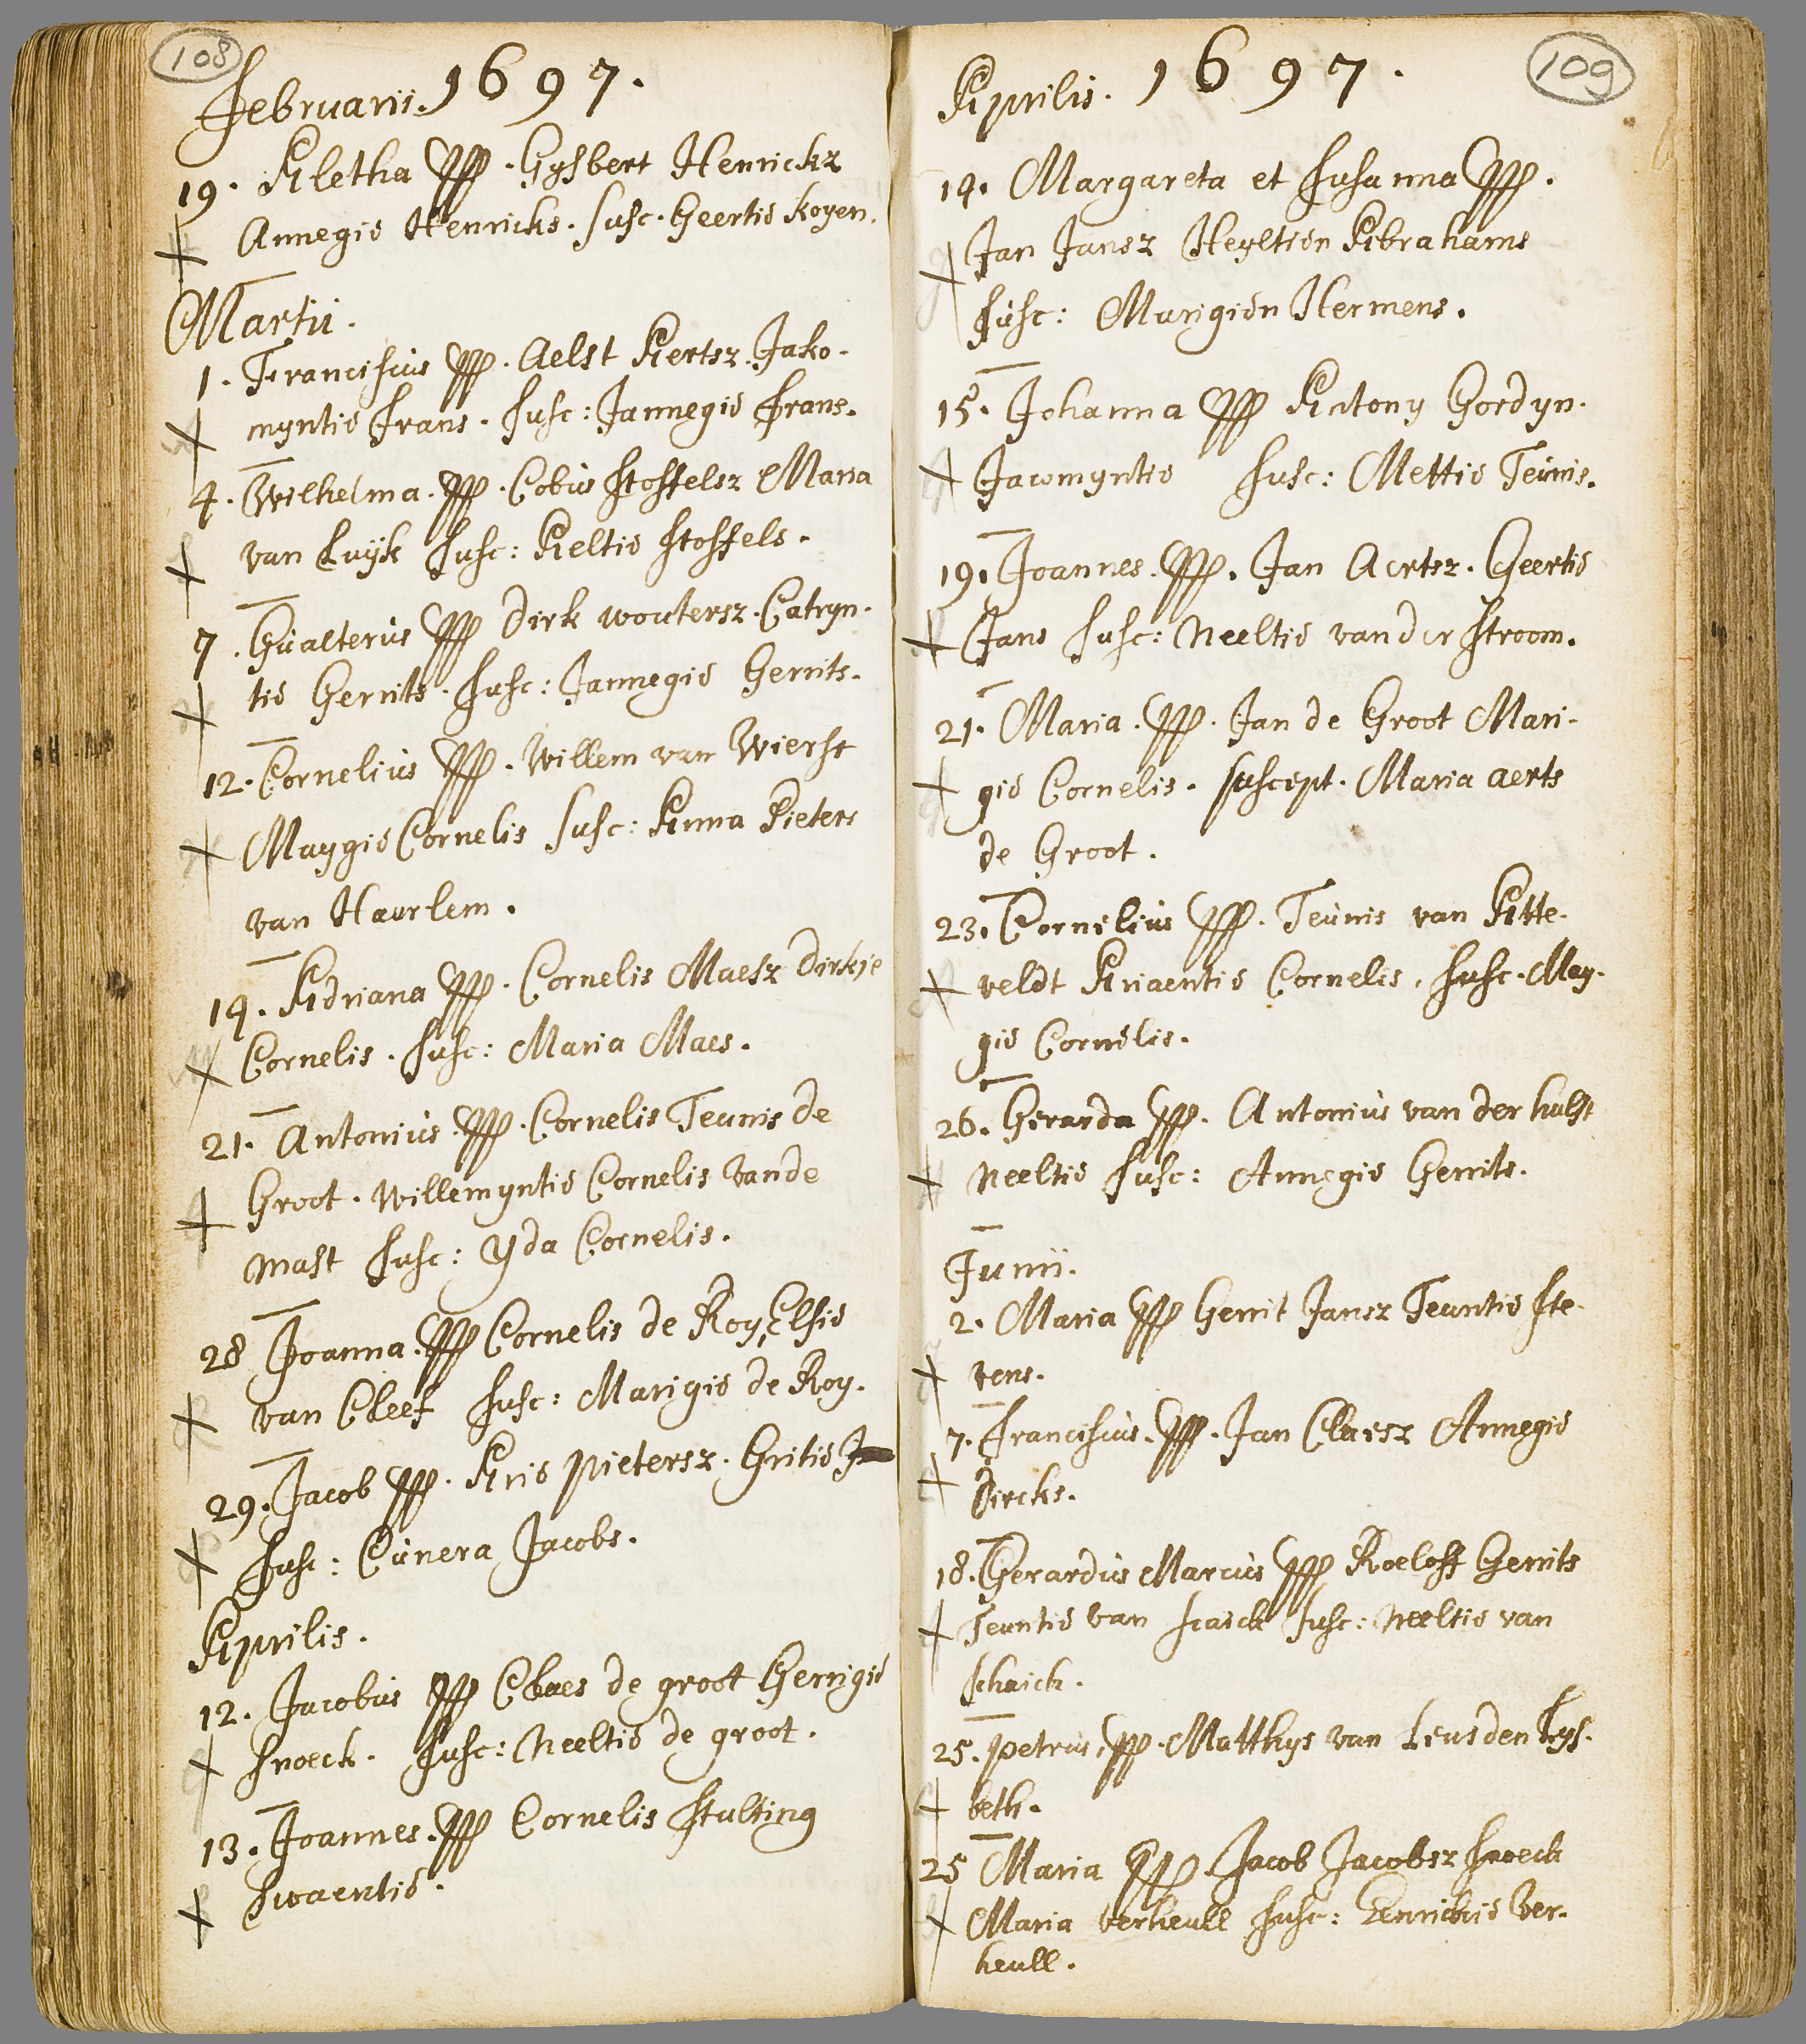 108
Februarii. 1697.
19. Aletha Pp. Gysbert Henrickz
Annegie Henricks. susc. Geertie Koyen.
Martii.
1. Franciscus Pp. Aelst Aertsz. Jako-
myntie Frans. susc: Jannegie Frans.
4. Wilhelma. Pp. Cobus Stoffelsz Maria
van Luijk susc: Aeltie Stoffels.
7. Gualterus Pp Dirk woutersz. Catryn-
tie Gerrits. susc: Jannegie Gerrits.
12. Cornelius Pp. Willem van Wierst
Maygie Cornelis susc: Anna Pieters
van Haerlem.
14. Adriana Pp. Cornelis Maesz Dirkje
Cornelis. susc: Maria Maes.
21. Antonius. Pp. Cornelis Teunis de
Groot. Willemyntie Cornelis vande
mast susc: Yda Cornelis.
28 Joanna. Pp Cornelis de Roy, Elsie
van Cleef susc: Marigie de Roy.
29. Jacob Pp. Arie pietersz. Gritie
susc: Cunera Jacobs.
Aprilis.
12. Jacobus Pp Claes de groot Gerrigie
snoeck. susc: Neeltie de groot.
13. Joannes. Pp Cornelis Stulting
Swaentie.
109
Aprilis. 1697.
14. Margareta et Susanna Pp.
Jan Jansz Heyltien Abrahams
susc: Marigien Hermens.
15. Johanna Pp Antony Gordyn.
Jacomyntie susc: Mettie Teunis.
19. Joannes. Pp. Jan Aertsz. Geertie
Jans susc: Neeltie vander Stroom.
21. Maria. Pp. Jan de Groot Mari-
gie Cornelis. suscept. Maria aerts
de Groot.
23. Cornelius Pp. Teunis van Atte-
veldt Ariaentie Cornelis, susc. May-
gie Cornelis.
26. Gerarda Pp. Antonius van der hulst
Neeltie susc: Annegie Gerrits.
Junii.
2. Maria Pp Gerrit Jansz Teuntie Ste-
vens.
7. Franciscus. Pp. Jan Claesz Annegie
Dircks.
18. Gerardus Marcus Pp Roeloff Gerrits
Teuntie van scaick susc: Neeltie van
schaick.
25. petrus, Pp. Matthys van Leusden Lys-
beth.
25 Maria Pp Jacob Jacobsz Snoeck
Maria verheull susc: Henrickie Ver-
heull.